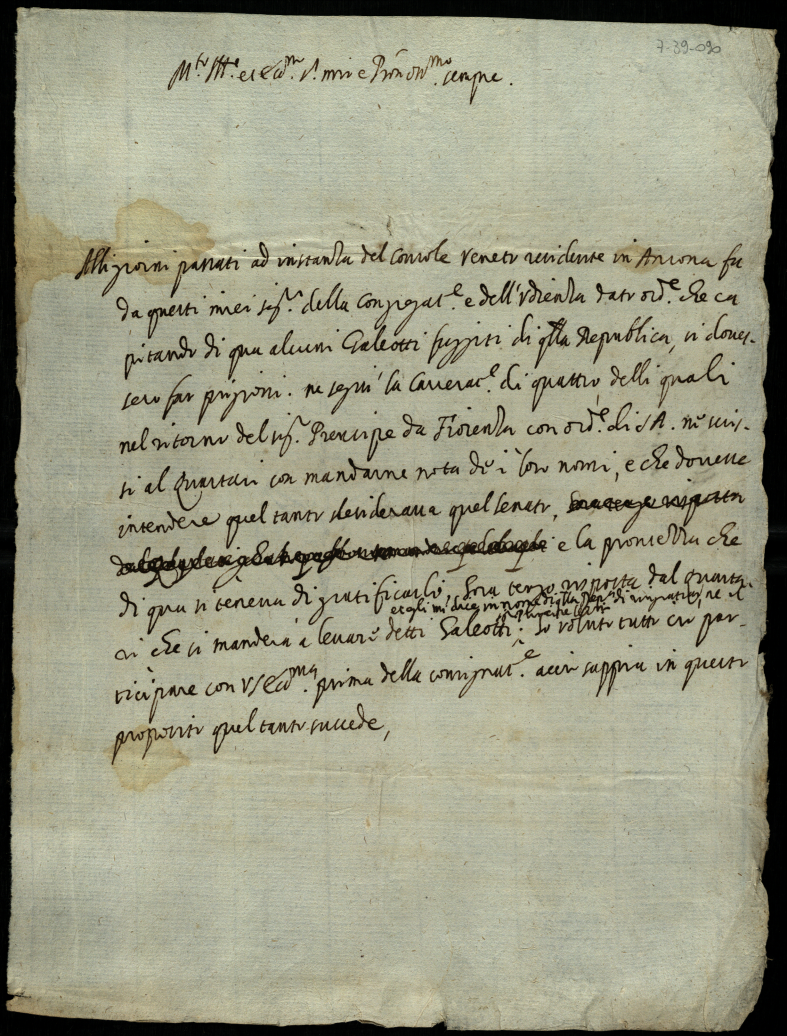 7-39-090
M.to Ill.e et Ecc.mo S.r mio e Pron oss.mo sempre.
Alli giorni passati ad instanza del Console Veneto residente in Ancona fu
da questi miei sig.ri della Congregat.e e dell'Udienza dato ord.e che ca
pitando di qua alcuni Galeotti fuggiti di q.lla Republica, si doves-
sero far prigioni. ne seguì la Carcerac.e di quattro, delli quali
nel ritorno del sig.r Prencipe da Fiorenza con ord.e di S A. ne scris-
si al Quartari con mandarne nota de i loro nomi, e che dovesse
intendere quel tanto desiderava quel senato,
e la prontezza che
di qua si teneva di gratificarlo, hora tengo risposta dal Quarta-
et egli mi dice in nome di di ringratiarne il
ri che si manderà a levare detti Galeotti; ho voluto tutto ciò par-
ticipare con VS Ecc.ma prima della consignat.e acciò sappia in questo
proposito quel tanto succede,